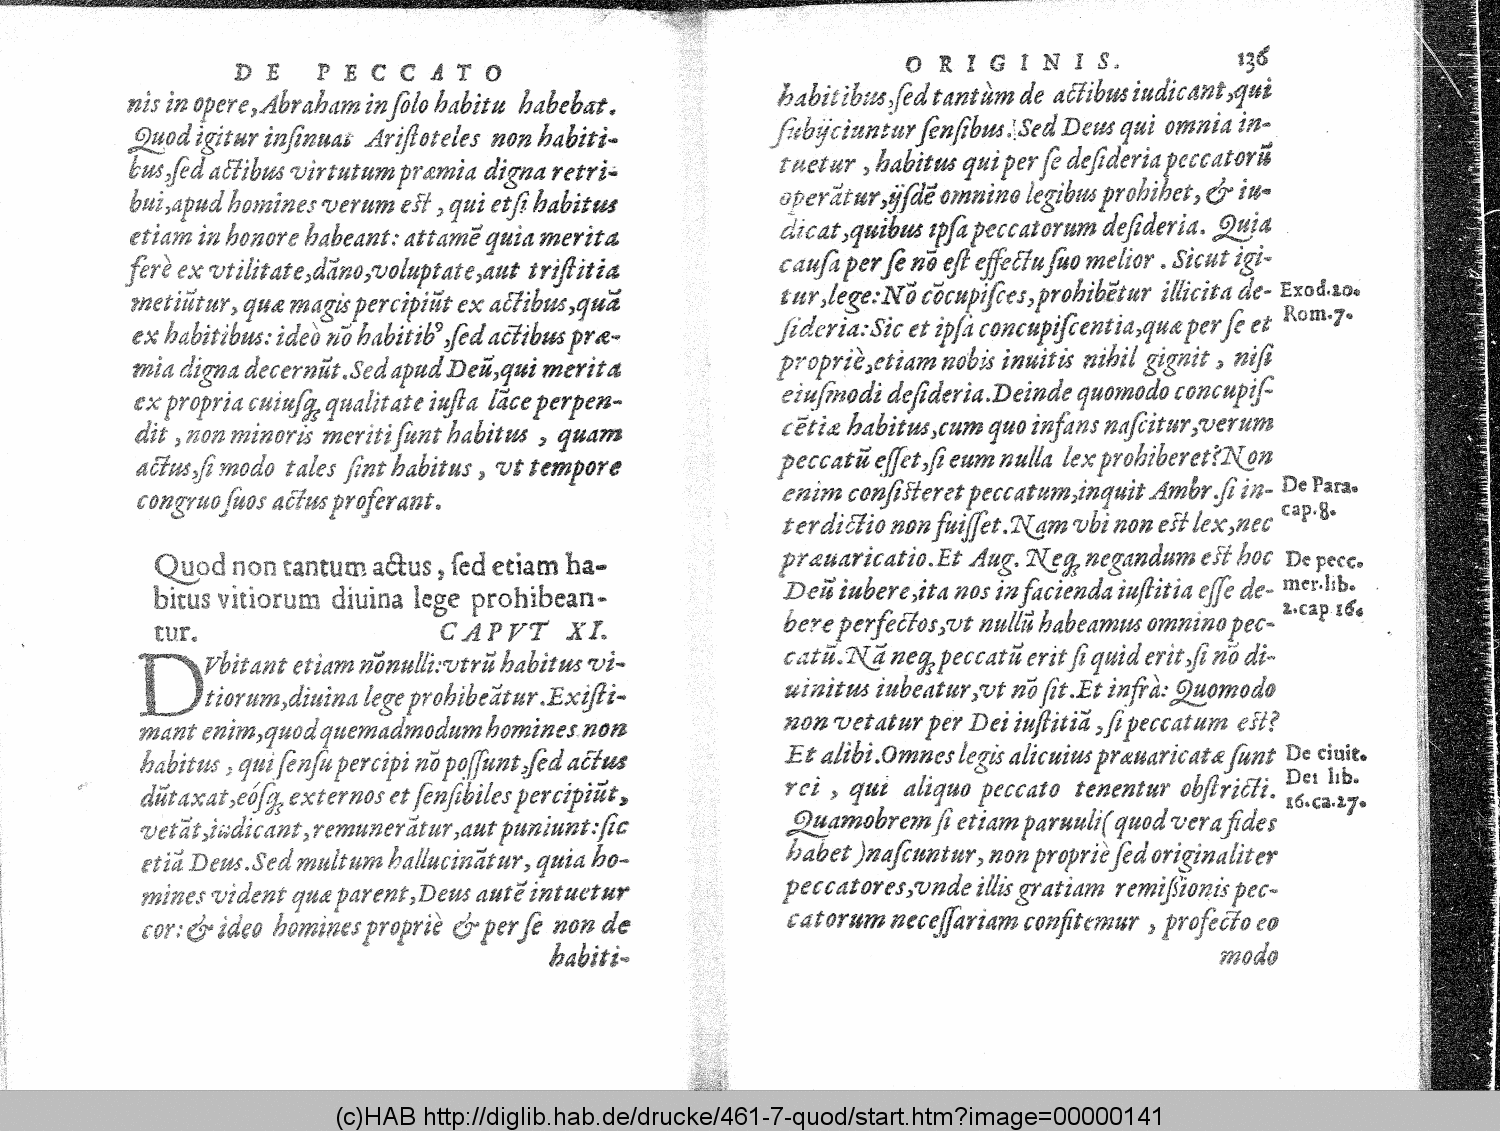 DE PECCATO
nis in opere, Abraham in ſolo habitu habebat.
Quod igitur inſinuat Ariſtoteles non habiti-
bus, ſed actibus virtutum præmia digna retri-
bui, apud homines verum est, qui etſi habitus
etiam in honore habeant: attamē quia merita
ferè ex vtilitate, dāno, voluptate, aut triſtitia
metiūtur, quæ magis percipiūt ex actibus, quā
ex habitibus: ideò nō habitibꝰ, ſed actibus præ-
mia digna decernūt. Sed apud Deū, qui merita
ex propria cuiuſq; qualitate iuſta lāce perpen-
dit, non minoris meriti ſunt habitus, quam
actus, ſi modo tales ſint habitus, vt tempore
congruo ſuos actus proferant.
Quod non tantum actus, ſed etiam ha-
bitus vitiorum diuina lege prohibean-
tur. CAPVT XI.
DVbitant etiam nōnulli: vtrū habitus vi-
tiorum, diuina lege prohibeātur. Exiſti-
mant enim, quod quemadmodum homines non
habitus, qui ſenſu percipi nō poſſunt, ſed actus
dūtaxat, eóſq; externos et ſenſibiles percipiūt,
vetāt, iudicant, remunerātur, aut puniunt: ſic
etiā Deus. Sed multum hallucinātur, quia ho-
mines vident quæ parent, Deus autē intuetur
cor: & ideo homines propriè & per ſe non de
habiti-
ORIGINIS. 136
habitibus, ſed tantùm de actibus iudicant, qui
ſubijciuntur ſenſibus. Sed Deus qui omnia in-
tuetur, habitus qui per ſe deſideria peccatorū
operātur, ijſdē omnino legibus prohibet, & iu-
dicat, quibus ipſa peccatorum deſideria. Quia
cauſa per ſe nō eſt effectu ſuo melior. Sicut igi-
tur, lege: Nō cōcupiſces, prohibētur illicita de-
ſideria: Sic et ipſa concupiſcentia, quæ per ſe et
propriè, etiam nobis inuitis nihil gignit, niſi
eiuſmodi deſideria. Deinde quomodo concupiſ-
cētiæ habitus, cum quo infans naſcitur, verum
peccatū eſſet, ſi eum nulla lex prohiberet? Non
enim conſiſteret peccatum, inquit Ambr. ſi in-
terdictio non fuiſſet. Nam vbi non est lex, nec
præuaricatio. Et Aug. Neq; negandum est hoc
Deū iubere, ita nos in facienda iuſtitia eſſe de-
bere perfectos, vt nullū habeamus omnino pec-
catū. Nā neq; peccatū erit ſi quid erit, ſi nō di-
uinitus iubeatur, vt nō ſit. Et infrà: Quomodo
non vetatur per Dei iuſtitiā, ſi peccatum est?
Et alibi. Omnes legis alicuius præuaricatæ ſunt
rei, qui aliquo peccato tenentur obſtricti.
Quamobrem ſi etiam paruuli (quod vera fides
habet) naſcuntur, non propriè ſed originaliter
peccatores, vnde illis gratiam remiſsionis pec-
catorum neceſſariam confitemur, profecto eo
modo
Exod.20.
Rom.7.
De Para.
cap.8.
De pecc.
mer.lib.
2.cap 16.
De ciuit.
Dei lib.
16.ca.27.
(c)HAB http://diglib.hab.de/drucke/461-7-quod/start.htm?image=00000141